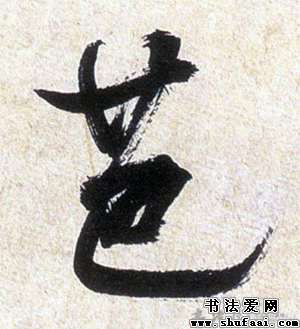 芭
书法爱网
www.shufaai.com